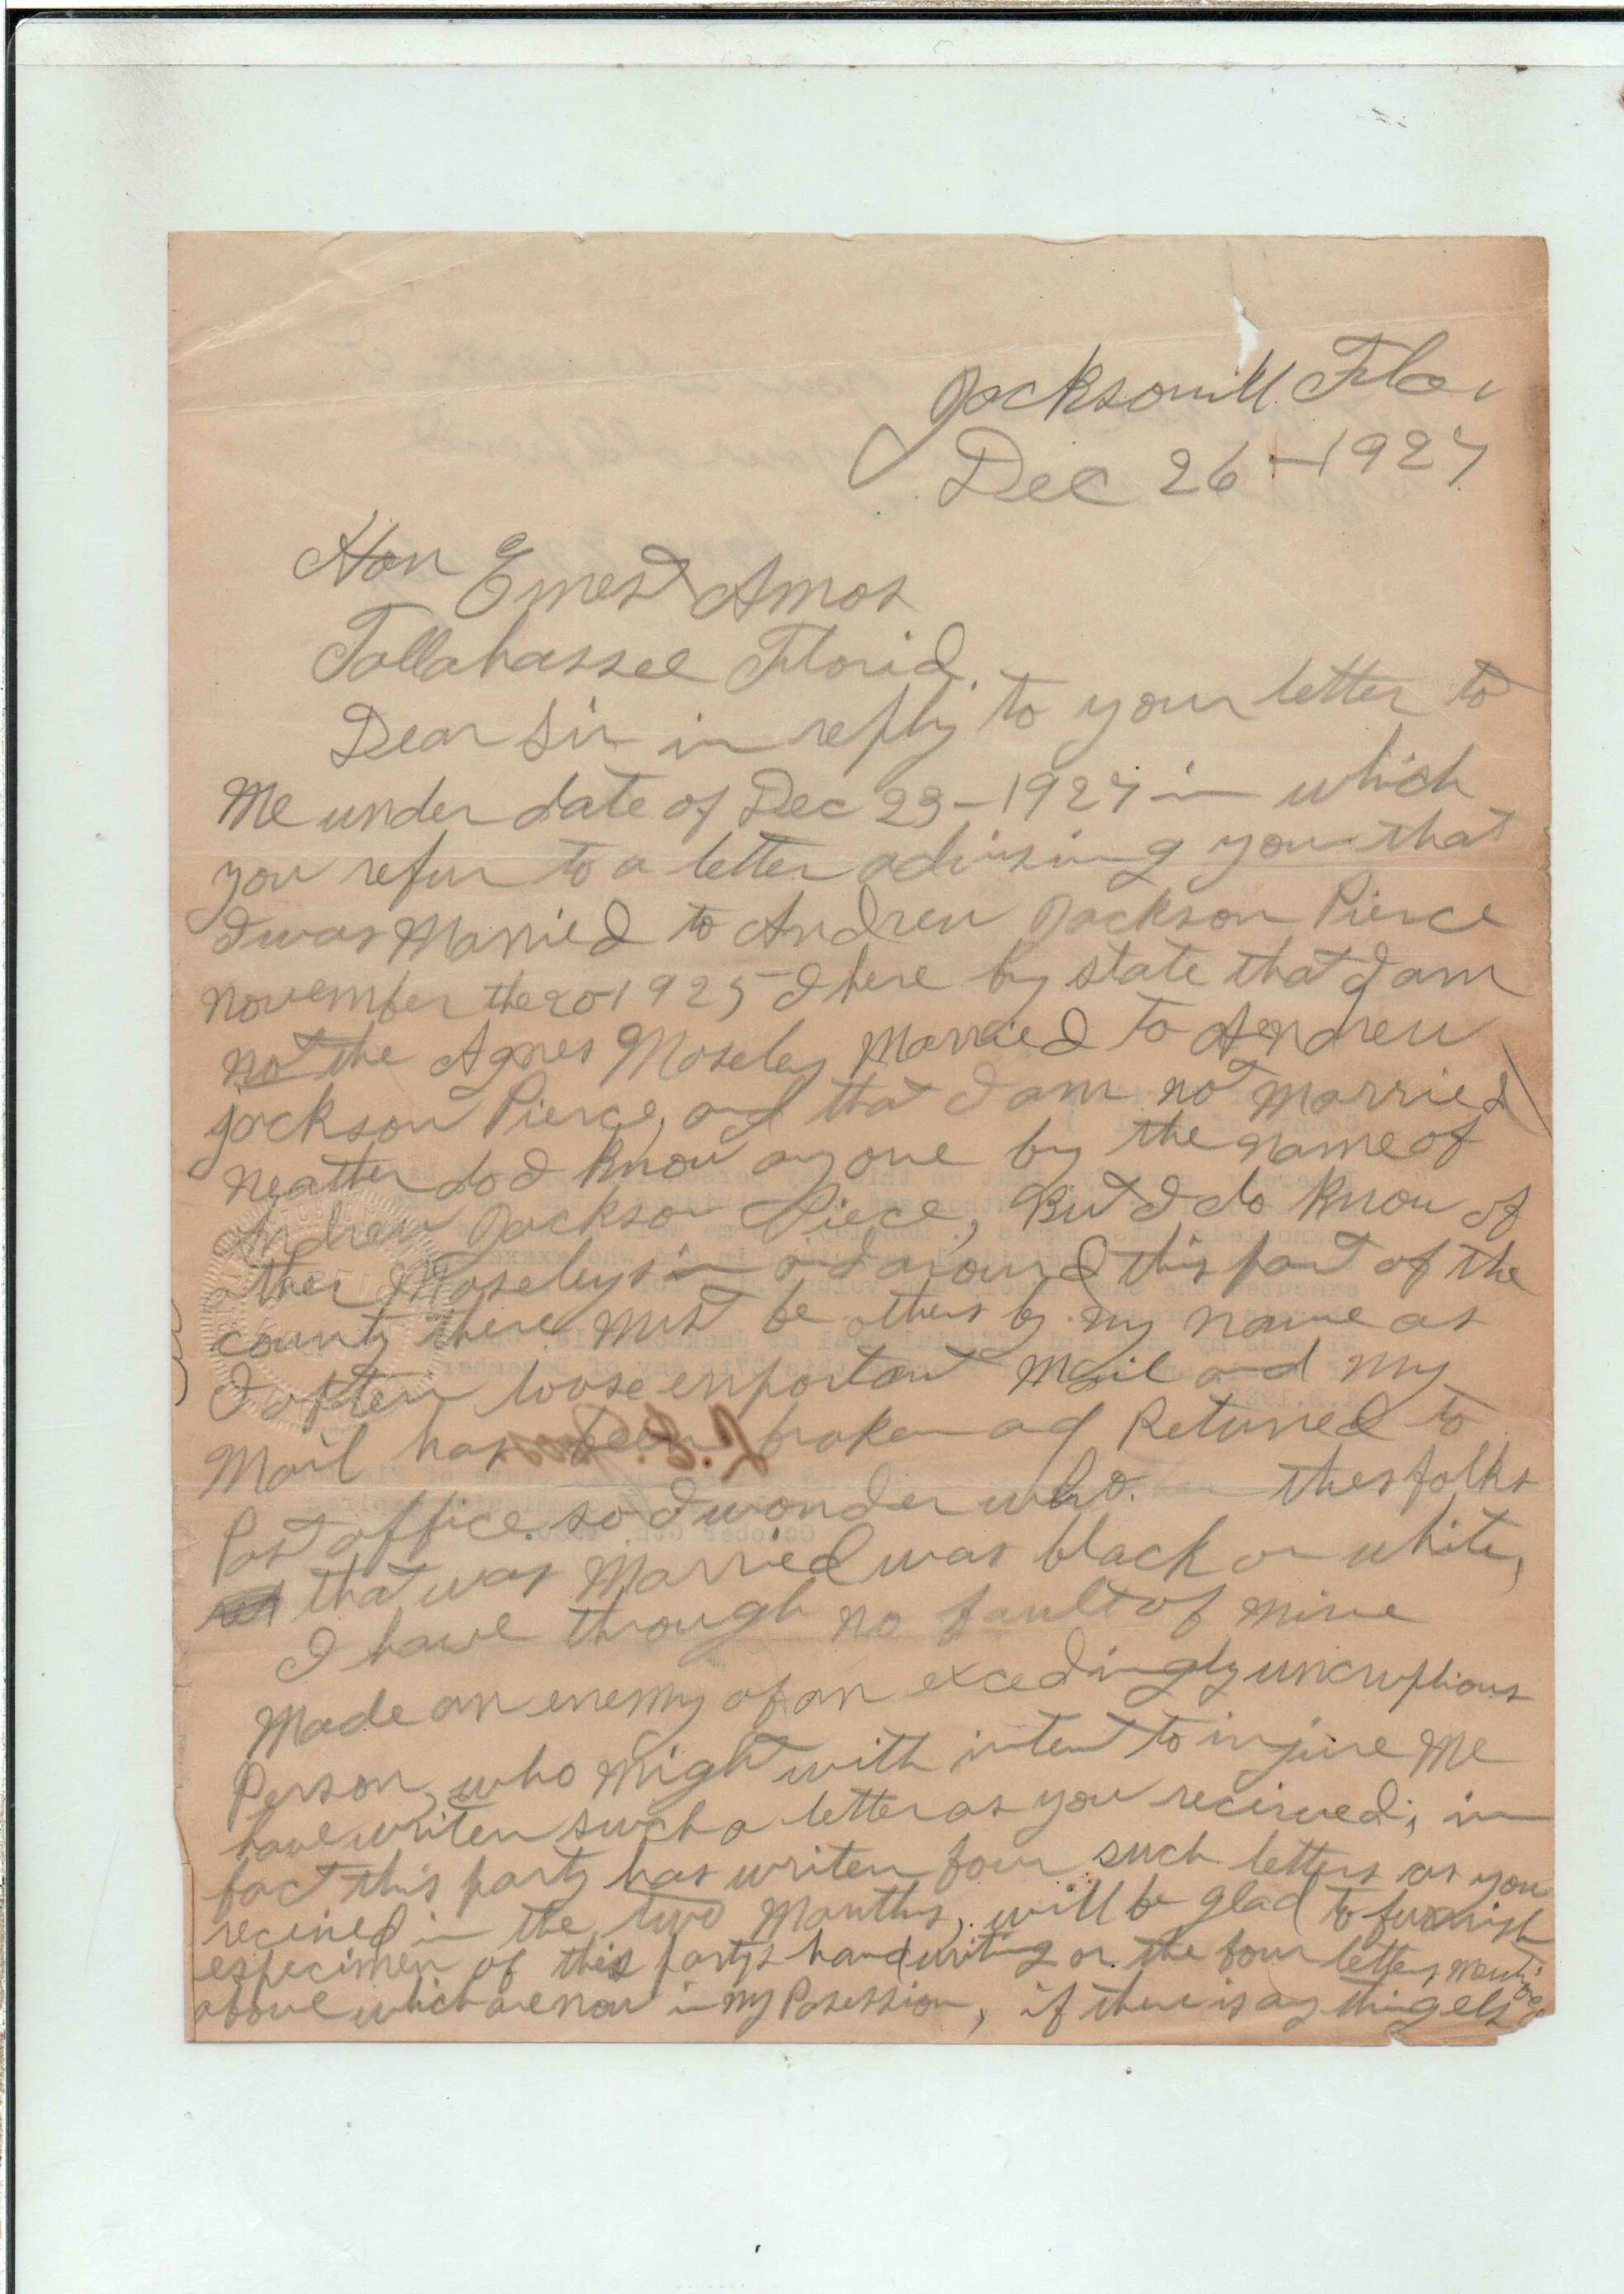 Jacksonvill Fla.
Dec 26-1927
Hon Ernest Amos
Tallahassee Florid.
Dear Sir in reply to your letter to
Me under date of Dec 23-1927 in which
you refur to a letter adivising you that
I was Married to Andrew Jackson Pierce
November the 20 1925 I here by state that I am
not the Agnes Moseley Married to Andrew
Jackson Pierce, and that I am not Married
neather do I know any one by the name of
Andrew Jackson Piece, But I do know of
ther Moseleys in and around this part of the
county there must be others by my name as
I often loose enportant Mail and my
Mail has been broken and Returned to
Post office. so I wonder who. thes folks
that was Married was black or white,
I have through no fault of mine
Made an enemy of an excedingly uncruplious
Person, who Might with intent to injure Me
have writen such a letter as you recieved; in
fact this party has writen four such letters as you
recined in the two Months, will be glad to furnish
especimen of this partys handwriting or the four letters mentioned
above which are now in my Posession, if there is any thing els